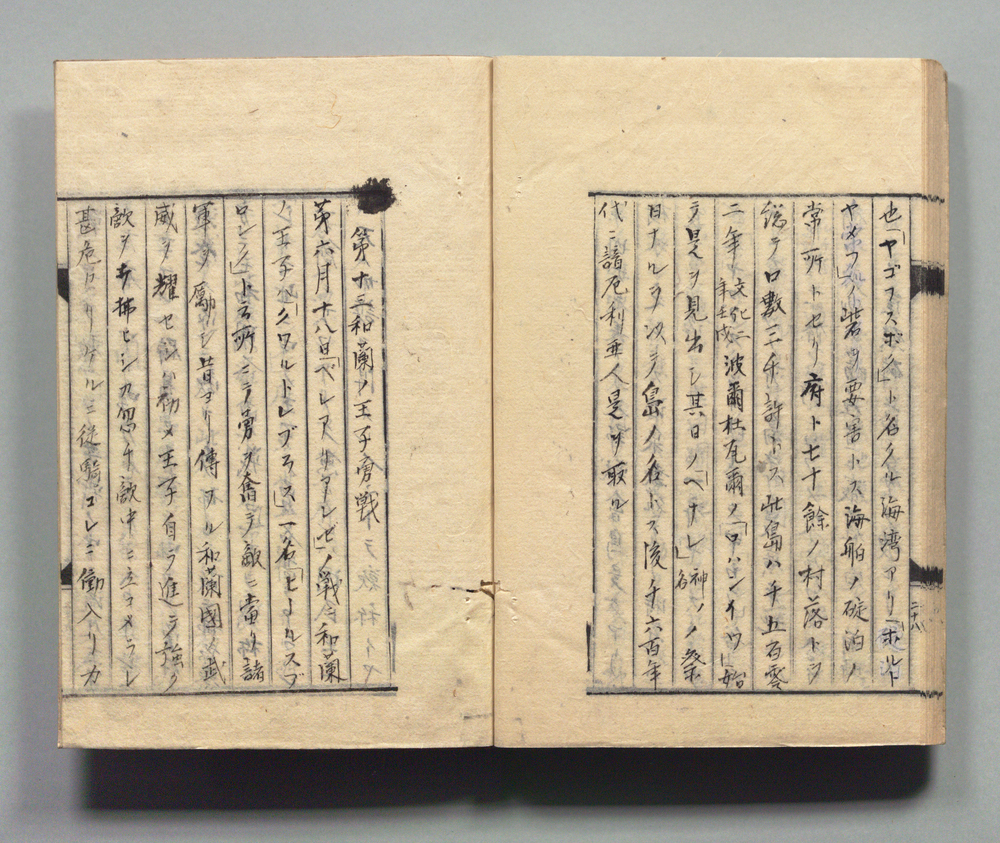 也「ヤゴフスボノ」ト名クル海湾アリ「ホルト
ヤメフ」ト砦ヲ要害トス海舶ノ碇泊ノ
常所トセリ府ト七十餘ノ村落トヲ
総テ口数三千許トス此島ハ千五百零
二年文化二年壬戌波爾杜瓦爾ノ「ロハンイツ」始
テ是ヲ見出シ其日ノ「ヘナレ」神ノ名ノ祭
日ナルヲ以テ島ノ名トス後千六百年
代ニ諳厄利亜人是ヲ取ル
二十八
第十三和蘭ノ王子勇戦
第六月十八日「ベレアリアンセ」ノ戦ニ和蘭
ノ王子ハ「クワルトレブラス」一名「ヒールスブ
ロンク」ト云所ニテ勇ヲ奮テ敵ニ當リ諸
軍ヲ励シ昔ヨリ傳フル和蘭國ノ武
威ヲ耀セシハ初メ王子自ラ進テ強ク
敵ヲ打拂ヒシカ忽チ敵中ニ立コメラレ
甚危カリケルニ従騎コレニ働入リカ